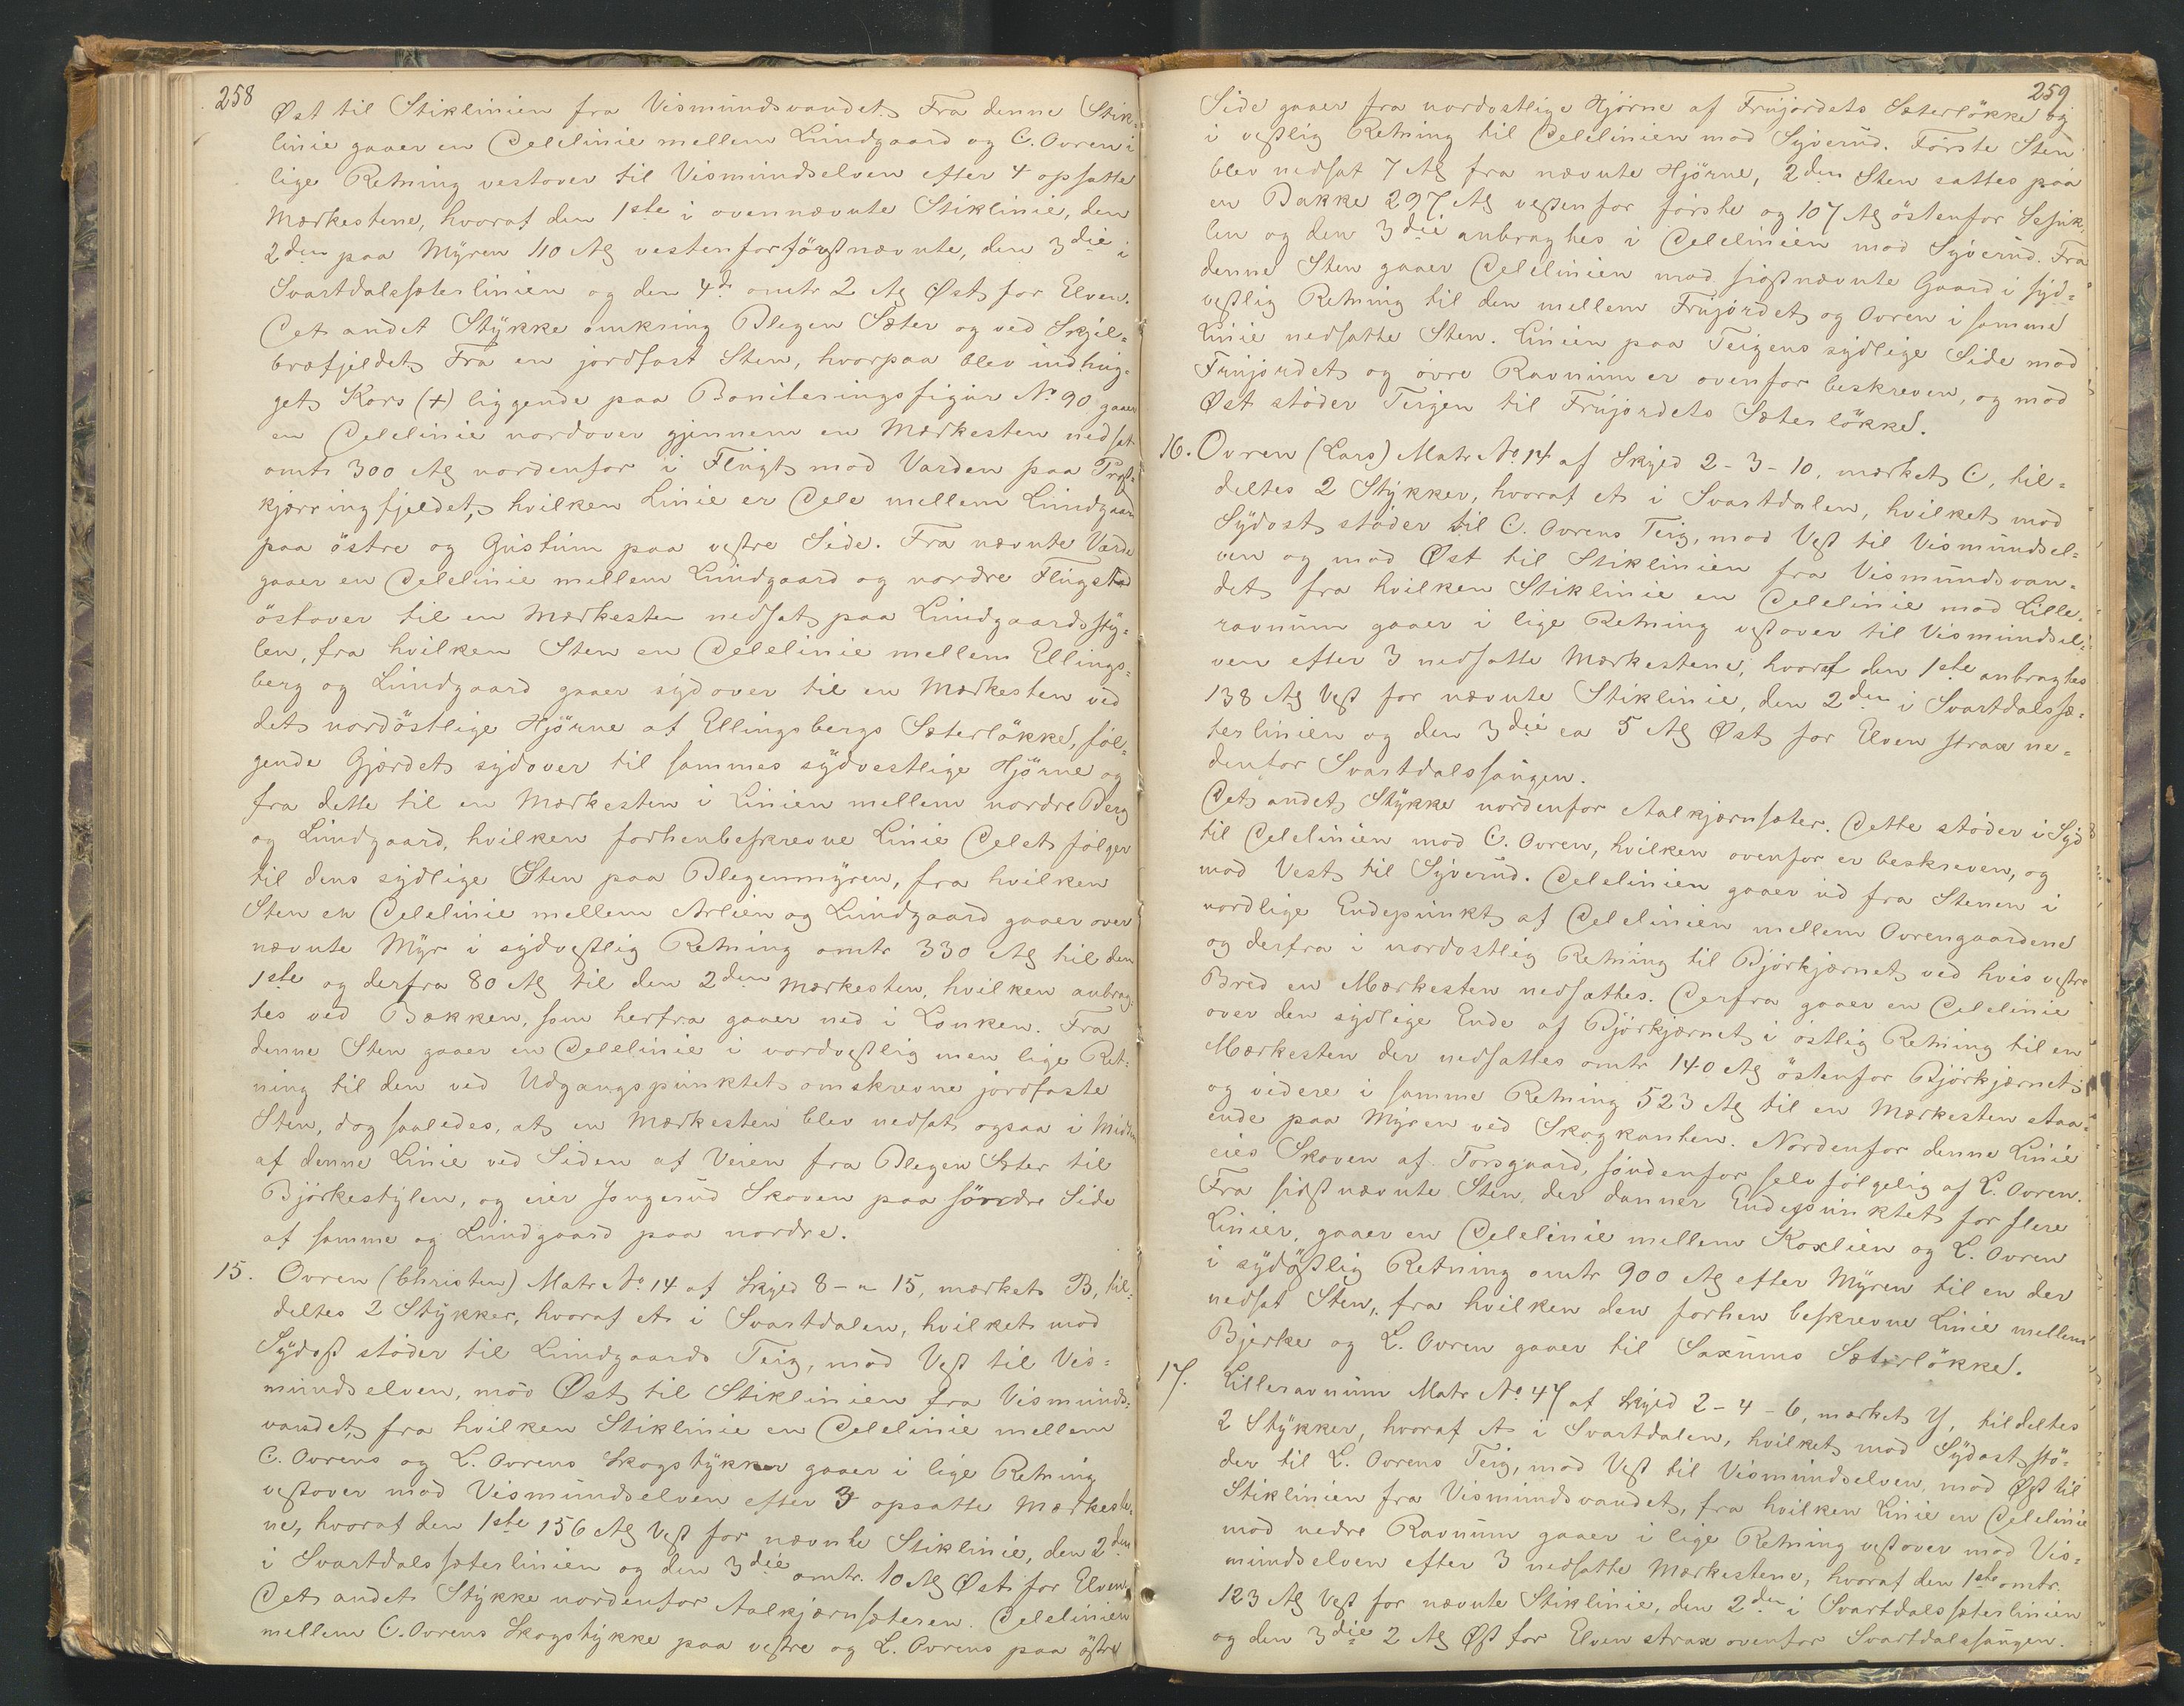 258
Øst til Stiklinien fra Vismundsvandet. Fra denne Stik-
linie gaaer en Delelinie mellem Lundgaard og C. Ovren i
lige Retning vestover til Vismundselven efter 4 opsatte
Mærkestene, hvoraf den 1ste i ovennævnte Stiklinie, den
2den paa Myren 110 Al vestenfor førstnævnte, den 3die i
Svartdalssæterlinien og den 4de omtr 2 Al Øst for Elven.
Det andet Stykke omkring Blegen Sæter og ved Skjel-
bræfjeldet. Fra en jordfast Sten, hvorpaa blev indhug-
get Kors (+) liggende paa Boniteringsfigur No 90 gaaer
en Delelinie nordover gjennem en Mærkesten nedsat
omtr 300 Al nordenfor i Flugt mod Varden paa Prest-
kjærringfjeldet, hvilken Linie er Dele mellem Lundgaard
paa østre og Gustum paa vestre Side. Fra nævnte Varde
gaaer en Delelinie mellem Lundgaard og nordre Flugstad
østover til en Mærkesten nedsat paa Lundgaardsstÿ-
len, fra hvilken Sten en Delelinie mellem Ellings-
berg og Lundgaard gaaer sydover til en Mærkesten ved
det nordöstlige Hjörne af Ellingsbergs Sæterløkke, føl-
gende Gjerdet sydover til sammes sydvestlige Hjörne og
fra dette til en Mærkesten i Linien mellem nordre Berg
og Lundgaard, hvilken forhenbeskrevne Linie Delet følger
til dens sydlige Sten paa Blegenmyren, fra hvilken
Sten en Delelinie mellem Arlien og Lundgaard gaaer over
nævnte Myr i sydvestlig Retning omtr 330 Al til den
1ste og derfra 80 Al til den 2den Mærkesten, hvilken anbrag-
tes ved Bækken, som herfra gaaer ned i Louken. Fra
denne Sten gaaer en Delelinie i nordvestlig men lige Ret-
ning til den ved Udgangspunktet omskrevne jordfaste
Sten, dog saaledes, at en Mærkesten blev nedsat ogsaa i Midten
af denne Linie ved Siden af Veien fra Blegen Sæter til
Björkestylen, og eier Jongerud Skoven paa söndre Side
af samme og Lundgaard paa nordre.
15. Ovren (Christen) Matr No 14 af Skyld 8-"-15, mærket B, til-
deltes 2 Stykker, hvoraf et i Svartdalen, hvilket mod
Sydost støder til Lundgaards Teig, mod Vest til Vis-
mundselven, mod Øst til Stiklinien fra Vismunds-
vandet, fra hvilken Stiklinie en Delelinie mellem
C. Ovrens og L. Ovrens Skogstykker gaaer i lige Retning
vestover mod Vismundselven efter 3 opsatte Mærkeste-
ne, hvoraf den 1ste 156 Al Vest for nævnte Stiklinie, den 2den
i Svartdalssæterlinien og den 3die omtr. 10 Al Øst for Elven.
Det andet Stykke nordenfor Aalkjærnsæteren. Delelinien
mellem C. Ovrens Skogstykke paa vestre og L. Ovrens paa østre
259
Side gaaer fra nordostlige Hjörne af Frujordets Sæterløkke og
i vestlig Retning til Delelinien mod Syverud. Første Sten
blev nedsat 7 Al fra nævnte Hjörne, 2den Sten sattes paa
en Bakke 297 Al vestenfor første og 107 Al østenfor
len og den 3die anbragtes i Delelinien mod Syverud. Fra
denne Sten gaaer Delelinien mod sidstnævnte Gaard i syd-
vestlig Retning til den mellem Frujordet og Ovren i samme
Linie nedsatte Sten. Linien paa Teigens sydlige Side mod
Frujordet og övre Ravnum er ovenfor beskreven, og mod
Øst støder Teigen til Frujordets Sæterløkke.
16. Ovren (Lars) Matr No 14 af Skyld 2-3-10, mærket C, til-
deltes 2 Stykker, hvoraf et i Svartdalen, hvilket mod
Sydost støder til C. Ovrens Teig, mod Vest til Vismundsel-
ven og mod Øst til Stiklinien fra Vismundsvan-
det, fra hvilken Stiklinie en Delelinie mod Lille-
ravnum gaaer i lige Retning vestover til Vismundsel-
ven efter 3 nedsatte Mærkestene, hvoraf den 1ste anbragtes
138 Al Vest for nævnte Stiklinie, den 2den i Svartdalssæ-
terlinien og den 3die ca 5 Al Øst for Elven strax ne-
denfor Svartdalssaugen.
Det andet Stykke nordenfor Aalkjærnsæter. Dette støder i Syd
til Delelinien mod C. Ovren, hvilken ovenfor er beskreven, og
mod Vest til Syverud. Delelinien gaaer ud fra Stenen i
nordlige Endepunkt af Delelinien mellem Ovrengaardene
og derfra i nordostlig Retning til Björkjærnet ved hvis vestre
Bred en Mærkesten nedsattes. Derfra gaaer en Delelinie
over den sydlige Ende af Björkjærnet i östlig Retning til en
Mærkesten der nedsattes omtr 140 Al östenfor Björkjærnet
og videre i samme Retning 523 Al til en Mærkesten staa-
ende paa Myren ved Skogkanten. Nordenfor denne Linie
eies Skoven af Torsgaard, söndenfor selv følgelig af L. Ovren.
Fra sidstnævnte Sten, der danner Endepunktet for flere
Linier, gaaer en Delelinie mellem Koxlien og L. Ovren
i sydöstlig Retning omtr 900 Al efter Myren til en der
nedsat Sten, fra hvilken den forhen beskrevne Linie mellem
Bjerke og L. Ovren gaaer til Saxums Sæterløkke.
17. Lilleravnum Matr No 47 af Skyld 2-4-6, mærket Y, tildeltes
2 Stykker, hvoraf et i Svartdalen, hvilket mod Sydost stö-
der til L. Ovrens Teig, mod Vest til Vismundselven, mod Øst til
Stiklinien fra Vismundsvandet, fra hvilken Linie en Delelinie
mod nedre Ravnum gaaer i lige Retning vestover mod Vis-
mundselven efter 3 nedsatte Mærkestene, hvoraf den 1ste omtr.
123 Al Vest for nævnte Stiklinie, den 2den i Svartdalssæterlinien
og den 3die 2 Al Øst for Elven strax ovenfor Svartdalssaugen.